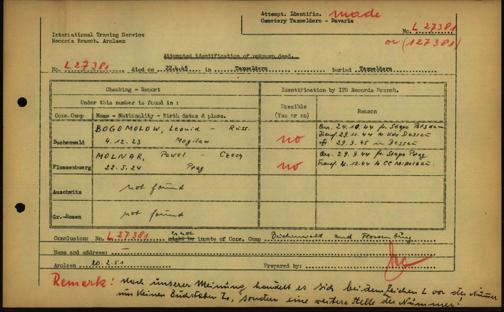 Attempt. Identific. made
Cemetery Taxoeldern - Bavaria
International Tracing Service
Records Branch. Arolsen
No. L 27381
or (127381)
Attempted identification of unknown dead.
No. L 27381 died on 22.4.45 in Taxoeldern buried Taxoeldern
Checking - Report
Identification by ITS Records Branch.
Under this number is found in :
Possible (Yes or no)
Reason
Conc.Camp
Name - Nationality - Birth dates & place.
Buchenwald
BOGOMOLOW, Leonid - Russ.
4.12.23 Mogilew
no
Flossenburg
MOLNAR, Pavel - Czech
22.5.24 Prag
no
Auschwitz
not found
Gr.-Rosen
not found
Conclusion: No. L 27381 is not inmate of Conc. Camp Buchenwald and Flossenbürg
Name and address:
Arolsen 20.2.51 Prepared by:
Remark: Nach unserer Meinung handelt es sich bei dem Zeichen L vor der Nummer
um keinen Buchstaben L, sondern eine weitere Stelle der Nummer!